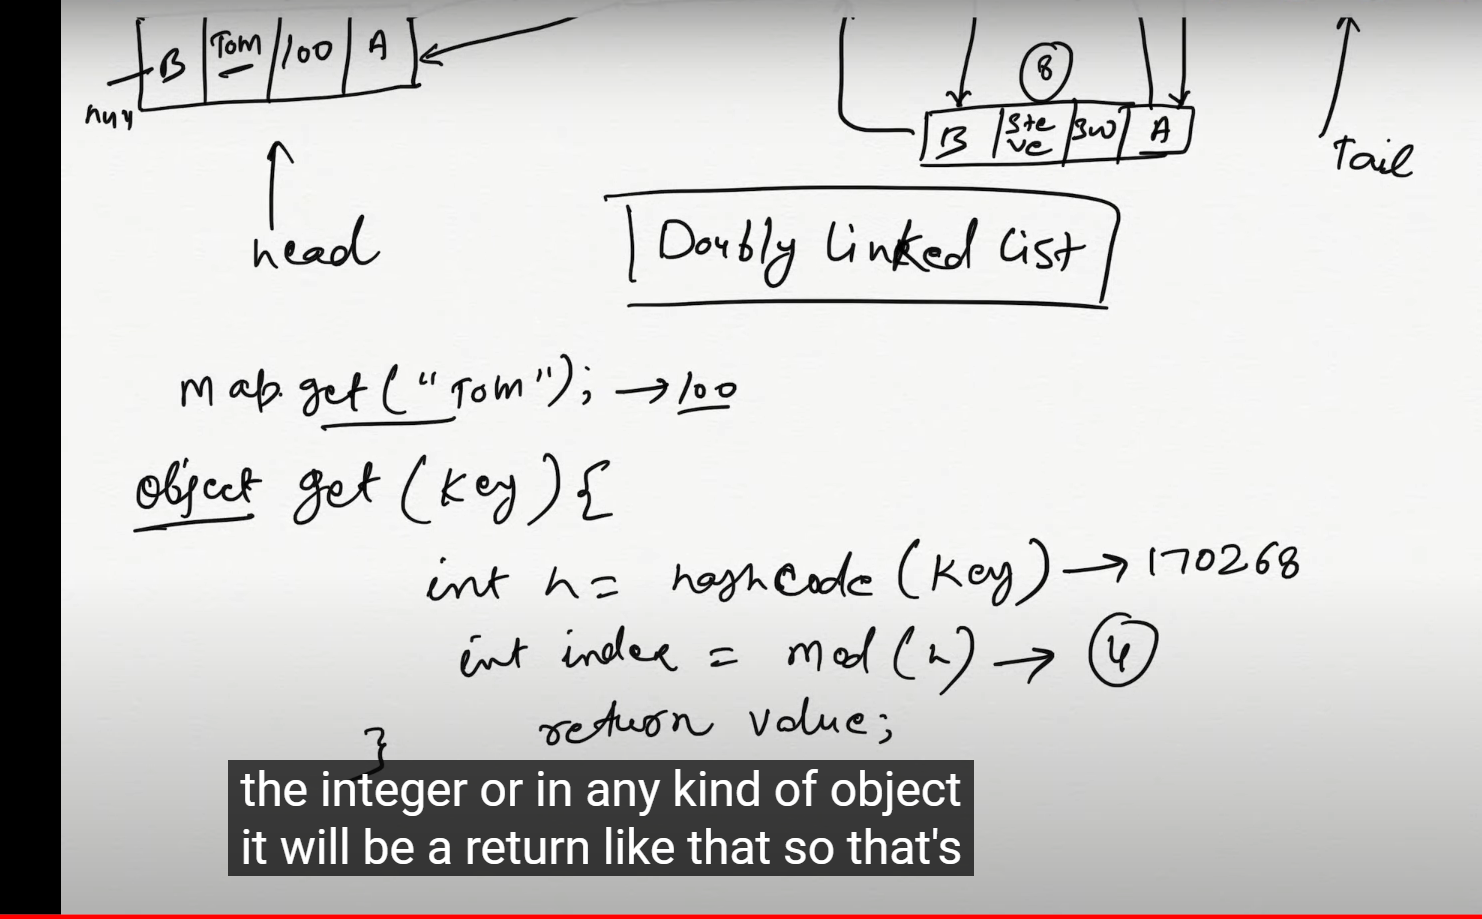 B Tom 100 A
null
head
8
B Ste ve 300 A
Tail
Doubly Linked List
map.get("Tom"); → 100
object get(key){
int h = hashcode(key) → 170268
int index = mod(h) → 4
return value;
}
the integer or in any kind of object
it will be a return like that so that's